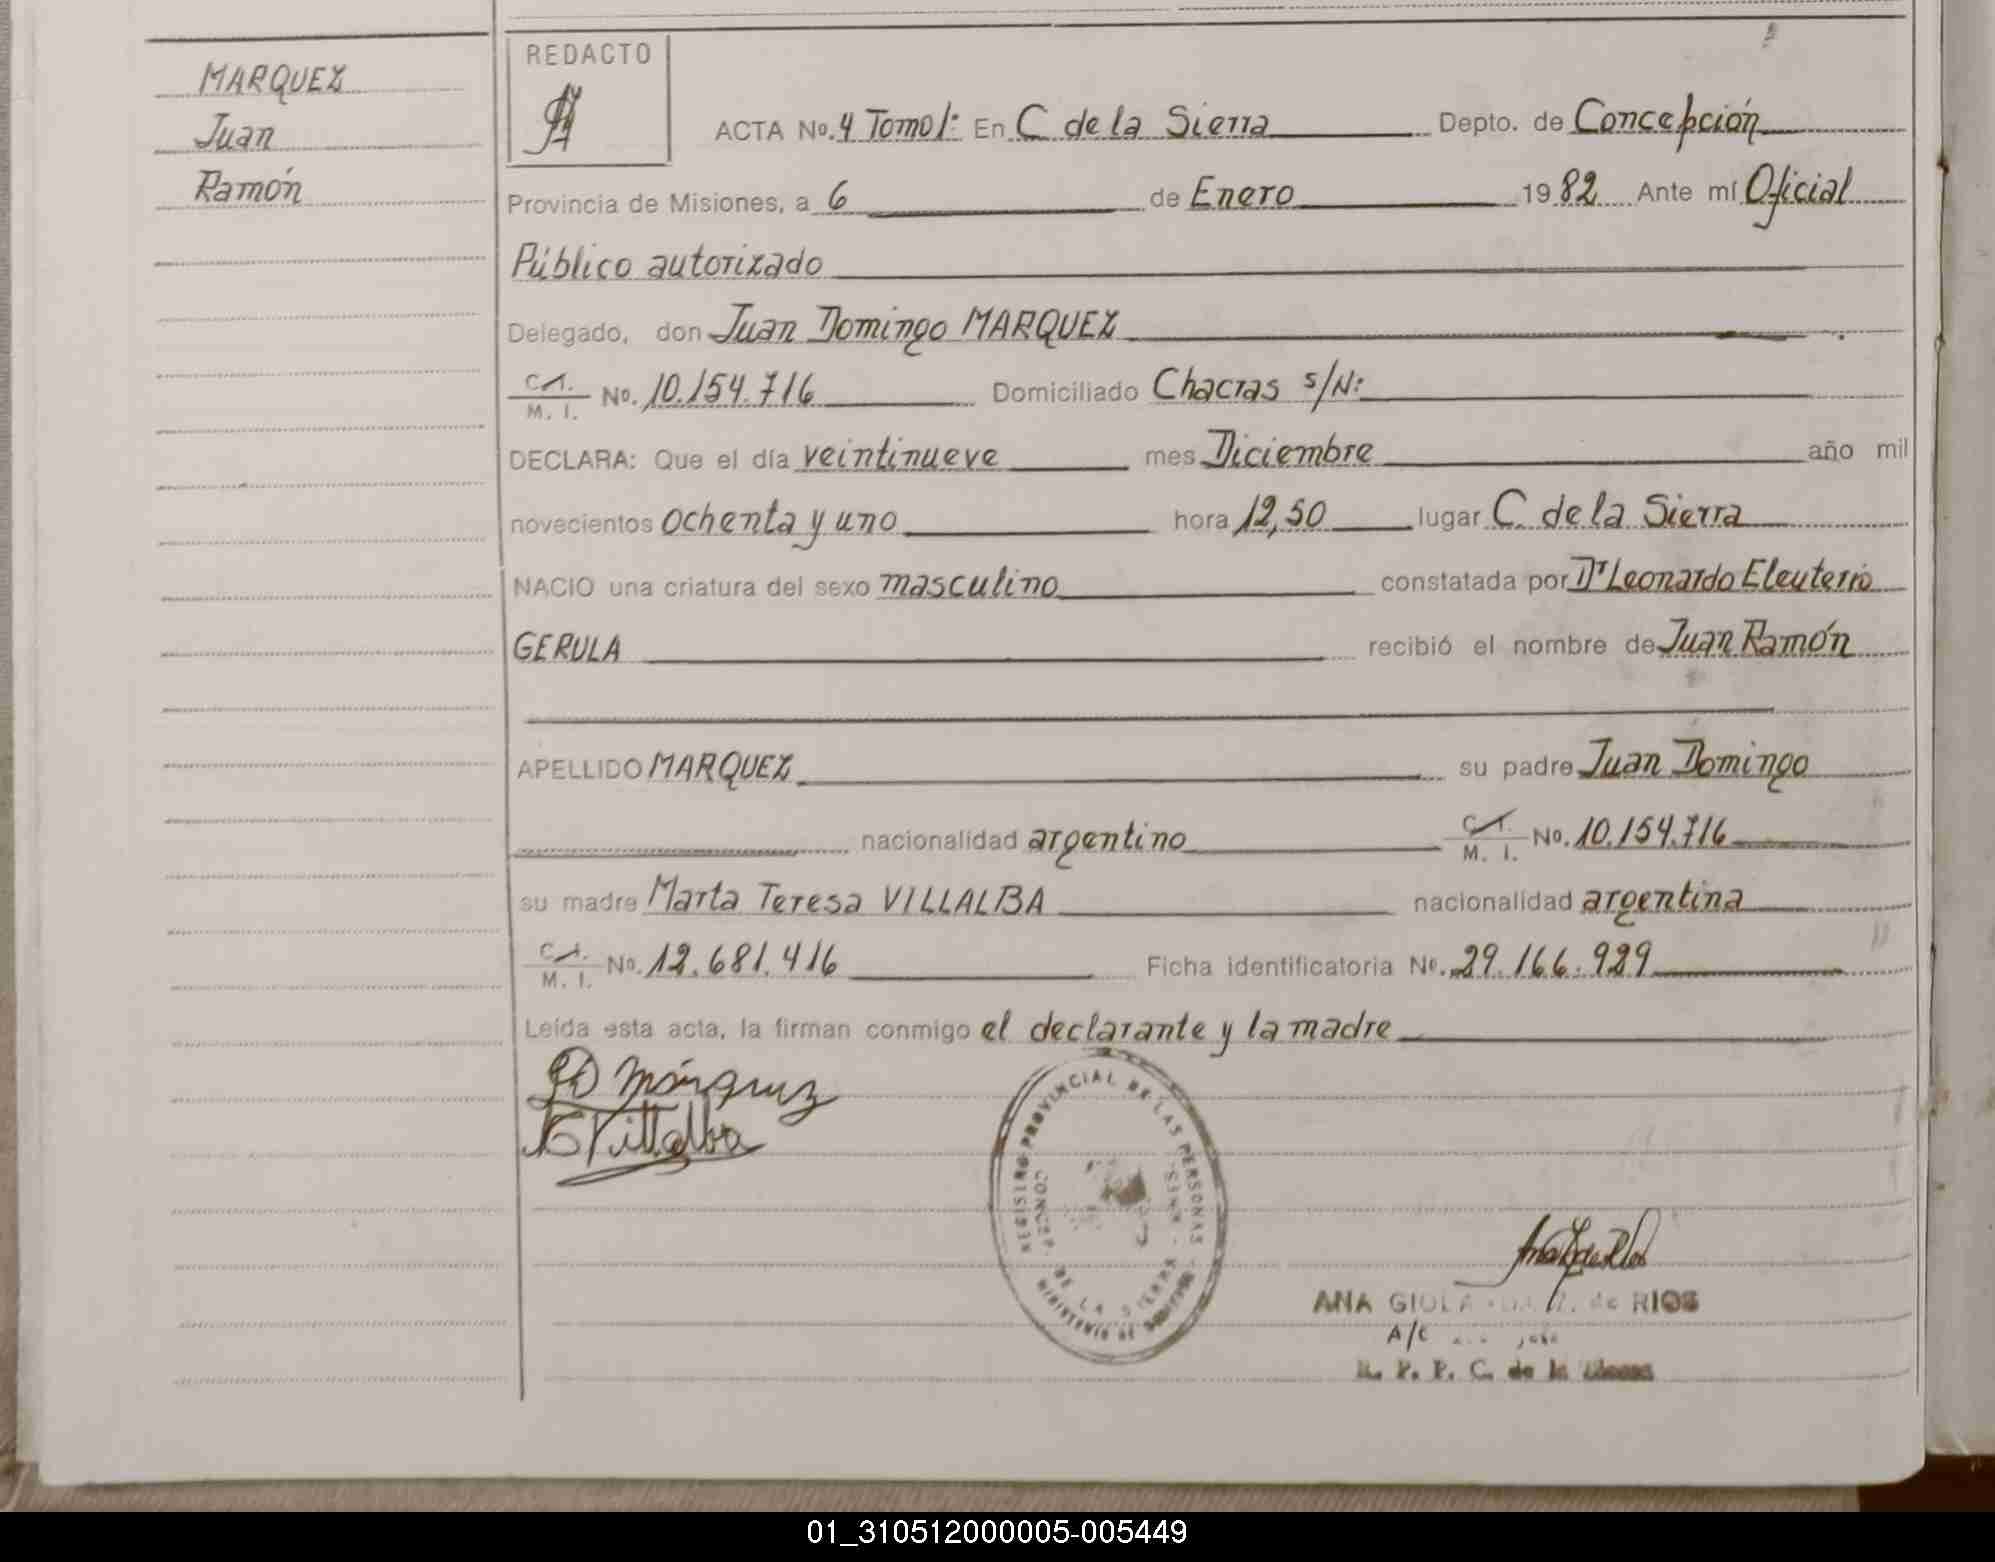 MARQUEZ
Juan
Ramón
REDACTO
ACTA No. 4 Tomo 1: En C de la Sierra Depto. de Concepción
Provincia de Misiones, a 6 de Enero 1982 Ante mí Oficial
Público autorizado
Delegado, don Juan Domingo MARQUEZ
C. I. M. I. No. 10.154.716 Domiciliado Chacras s/N:
DECLARA: Que el día veintinueve mes Diciembre año mil
novecientos ochenta y uno hora 12,50 lugar C. de la Sierra
NACIO una criatura del sexo masculino constatada por Dr Leonardo Eleuterio
GERULA recibió el nombre de Juan Ramón
APELLIDO MARQUEZ su padre Juan Domingo
nacionalidad argentino C. I. M. I. No. 10.154.716
su madre Marta Teresa VILLALBA nacionalidad argentina
C. I. M. I. No. 12.681.416 Ficha identificatoria No. 29.166.929
Leída esta acta, la firman conmigo el declarante y la madre
JD Márquez
Villalba
REGISTRO PROVINCIAL DE LAS PERSONAS
CONCEP. DE LA SIERRA
MINISTERIO DE
ANA de RIOS
A/C
R. P. P. C. de la Sierra
01_310512000005-005449